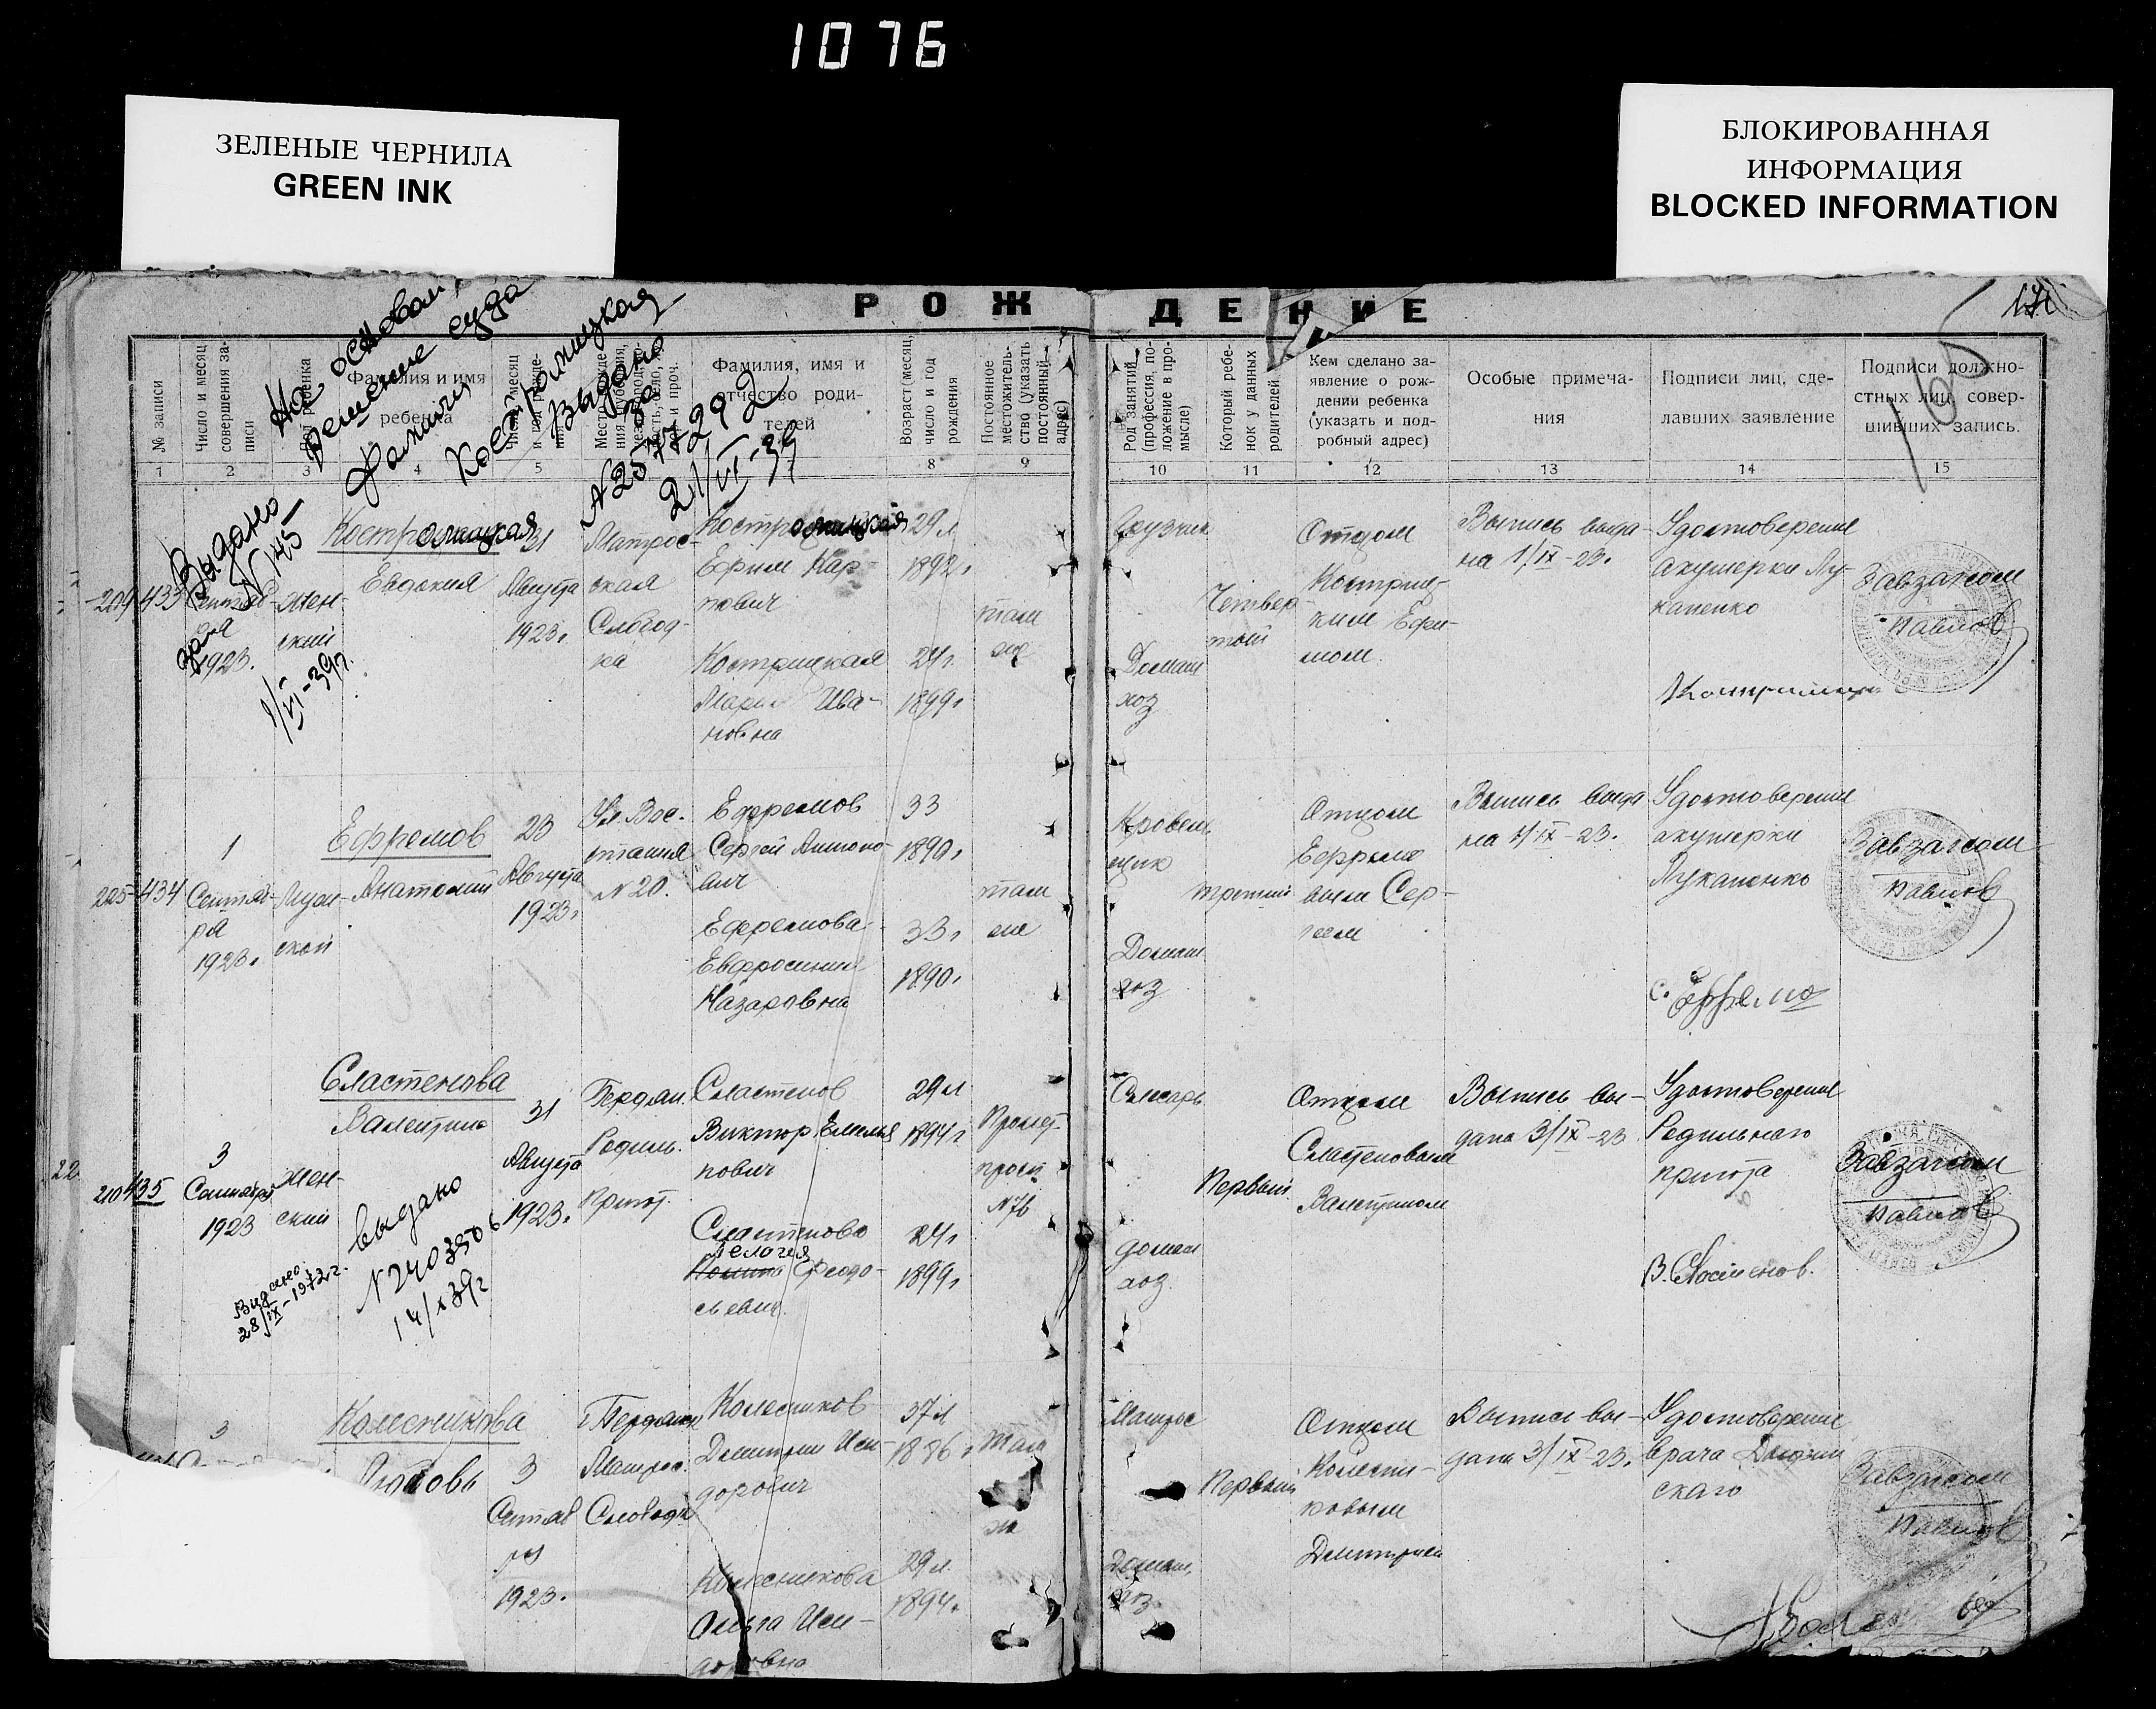 1076
ЗЕЛЕНЫЕ ЧЕРНИЛА
GREEN INK
БЛОКИРОВАННАЯ
ИНФОРМАЦИЯ
BLOCKED INFORMATION
РОЖДЕНИЕ
171
166
№ записи
Число и месяц
совершения за-
писи
ребенка
Фамилия и имя
ребенка
Фамилия, имя и
отчество роди-
телей
Возраст (месяц,
число и год
рождения
Постоянное
местожитель-
ство (указать
постоянный
адрес)
Род занятий
(профессия, по-
ложение в про-
мысле)
Который ребе-
нок у данных
родителей
Кем сделано за-
явление о рож-
дении ребенка
(указать и под-
робный адрес)
Особые примеча-
ния
Подписи лиц, сде-
лавших заявление
Подписи должно-
стных лиц, совер-
шивших запись.
1 2 3 4 5 8 9 10 11 12 13 14 15
На основан.
решение суда
фамилия
Костромицкая
Выдано
за
N 2577292
21/VI-39
Выдано
N 145
1/VI-39г.
209 433
1923.
Жен-
ский
Костромицкая
Евдокия
31
Августа
1923г.
Матрос-
ская
Слобод-
ка
Костромицкая
Ефим Кар-
пович
Кострицкая
Мария Ива-
новна
29 л
1892г.
24г.
1899г.
там
же
Грузчик
Домаш
хоз
Четвер
тый
Отцом
Кострицким
Ефи-
мом.
Выпись выда-
на 1/IX-23г.
Удостоверение
акушерки Лу-
капенко
Завзагсом
Павлов
434
1
Сентяб-
ря
1923г.
Муж-
ской
Ефремов
Анатолий
23
Августа
1923г.
Ул. Вос-
стания
N 20.
Ефремов
Сергей Антоно-
вич
Ефремова
Евфросиния
Назаровна
33
1890г.
33г.
1890г.
там
же
Кровель
щик
Домаш
хоз
третий
Отцом
Ефремо
вым Сер-
геем
Выпись выда
на 1/IX-23.
Удостоверение
акушерки
Лукапенко
Завзагсом
Павлов
С. Ефремо
22
210 435
3
Сентября
1923
Жен-
ский
Сластенова
Валентина
31
Августа
1923г.
Бердян.
Родиль.
Приют.
Сластенов
Виктор Емелья
нович
Сластенова
Пелагея
Феодо-
сьевна.
29 л
1894г
24г.
1899г.
Пролет.
просп
N 76
Слесарь
домаш
хоз.
Первый
Отцом
Сластеновым
Валентином
Выпись вы-
дана 3/IX-23
Удостоверение
Родильного
приюта
Завзагсом
Павлов
В. Сластенов.
выдано
N 2403506
14/X 39г
Видано
28/IX-1972г.
3
Колесникова
Любовь
3
Сентяб
ря
1923.
г. Бердянск
Матрос.
Слободка
Колесников
Дмитрий Иси-
дорович
Колесникова
Ольга Иси-
доровна
37 л
1886г.
29 л.
1894г.
там
же
Матрос
Домаш.
хоз.
Первый
Отцом
Колесни-
ковым
Дмитрием
Выпись вы-
дана 3/IX-23.
Удостоверение
врача
ского
Завзагсом
Павлов